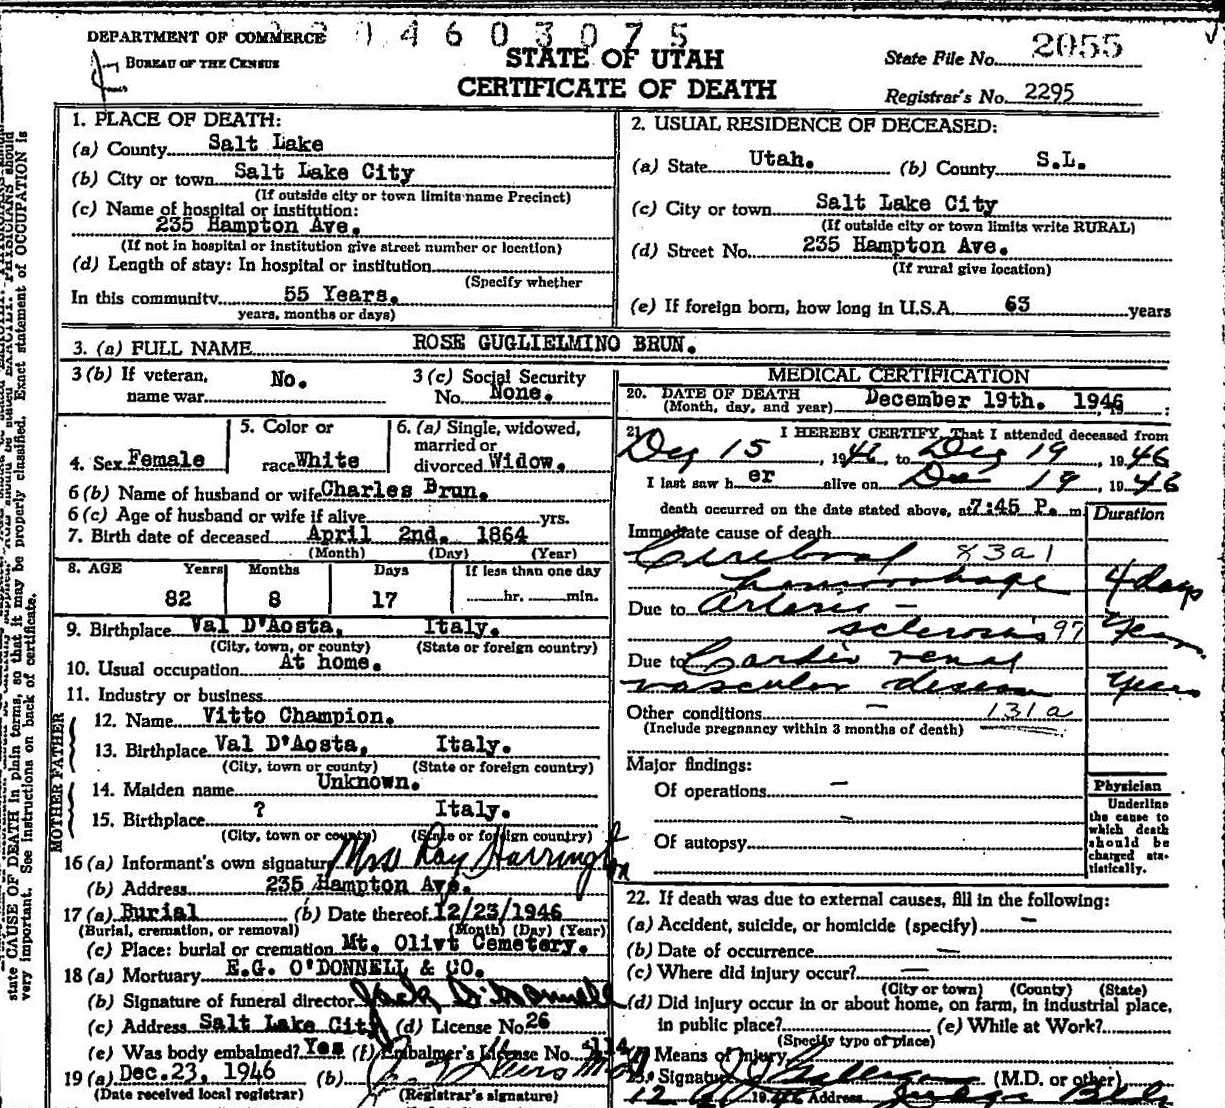 DEPARTMENT OF COMMERCE
BUREAU OF THE CENSUS
0 4 6 0 3 0 7 5
STATE OF UTAH
CERTIFICATE OF DEATH
State File No. 2055
Registrar's No. 2295
1. PLACE OF DEATH:
(a) County Salt Lake
(b) City or town Salt Lake City
(If outside city or town limits name Precinct)
(c) Name of hospital or institution:
235 Hampton Ave.
(If not in hospital or institution give street number or location)
(d) Length of stay: In hospital or institution
(Specify whether
In this community 55 Years.
years, months or days)
2. USUAL RESIDENCE OF DECEASED:
(a) State Utah. (b) County S.L.
(c) City or town Salt Lake City
(If outside city or town limits write RURAL)
(d) Street No. 235 Hampton Ave.
(If rural give location)
(e) If foreign born, how long in U.S.A. 63 years
3. (a) FULL NAME ROSE GUGLIELMINO BRUN.
3 (b) If veteran, name war No.
3 (c) Social Security No. None.
4. Sex Female
5. Color or race White
6. (a) Single, widowed, married or divorced Widow.
6 (b) Name of husband or wife Charles Brun.
6 (c) Age of husband or wife if alive yrs.
7. Birth date of deceased April 2nd. 1864
(Month) (Day) (Year)
8. AGE Years Months Days If less than one day
82 8 17 hr. min.
9. Birthplace Val D'Aosta, Italy.
(City, town, or county) (State or foreign country)
10. Usual occupation At home.
11. Industry or business
FATHER
12. Name Vitto Champion.
13. Birthplace Val D'Aosta, Italy.
(City, town or county) (State or foreign country)
MOTHER
14. Maiden name Unknown.
15. Birthplace ? Italy.
(City, town or county) (State or foreign country)
16 (a) Informant's own signature Mrs Ray Harrington
(b) Address 235 Hampton Ave.
17 (a) Burial (b) Date thereof 12/23/1946
(Burial, cremation, or removal) (Month) (Day) (Year)
(c) Place: burial or cremation Mt. Olivt Cemetery.
18 (a) Mortuary E.G. O'DONNELL & CO.
(b) Signature of funeral director Jack O'Donnell
(c) Address Salt Lake City (d) License No. 26
(e) Was body embalmed? Yes (f) Embalmer's License No. 114
19 (a) Dec. 23, 1946 (b)
(Date received local registrar) (Registrar's signature)
MEDICAL CERTIFICATION
20. DATE OF DEATH
(Month, day, and year) December 19th. 1946
21. I HEREBY CERTIFY, That I attended deceased from
Dec 15, 1946 to Dec 19, 1946
I last saw her alive on Dec 19, 1946
death occurred on the date stated above, at 7:45 P. m
Duration
Immediate cause of death
Cerebral 83a1
hemorrhage 4 days
Due to Arterio-
sclerosis 97 Years
Due to Cardio renal
vascular disease Years
Other conditions - 131a
(Include pregnancy within 3 months of death)
Major findings:
Of operations -
Of autopsy
Physician
Underline
the cause to
which death
should be
charged sta-
tistically.
22. If death was due to external causes, fill in the following:
(a) Accident, suicide, or homicide (specify) -
(b) Date of occurrence -
(c) Where did injury occur? -
(City or town) (County) (State)
(d) Did injury occur in or about home, on farm, in industrial place,
in public place? (e) While at Work?
(Specify type of place)
Means of Injury
23. Signature (M.D. or other)
Address Judge Bldg
state CAUSE OF DEATH in plain terms, so that it may be properly classified. Exact statement of OCCUPATION is
very important. See instructions on back of certificate.